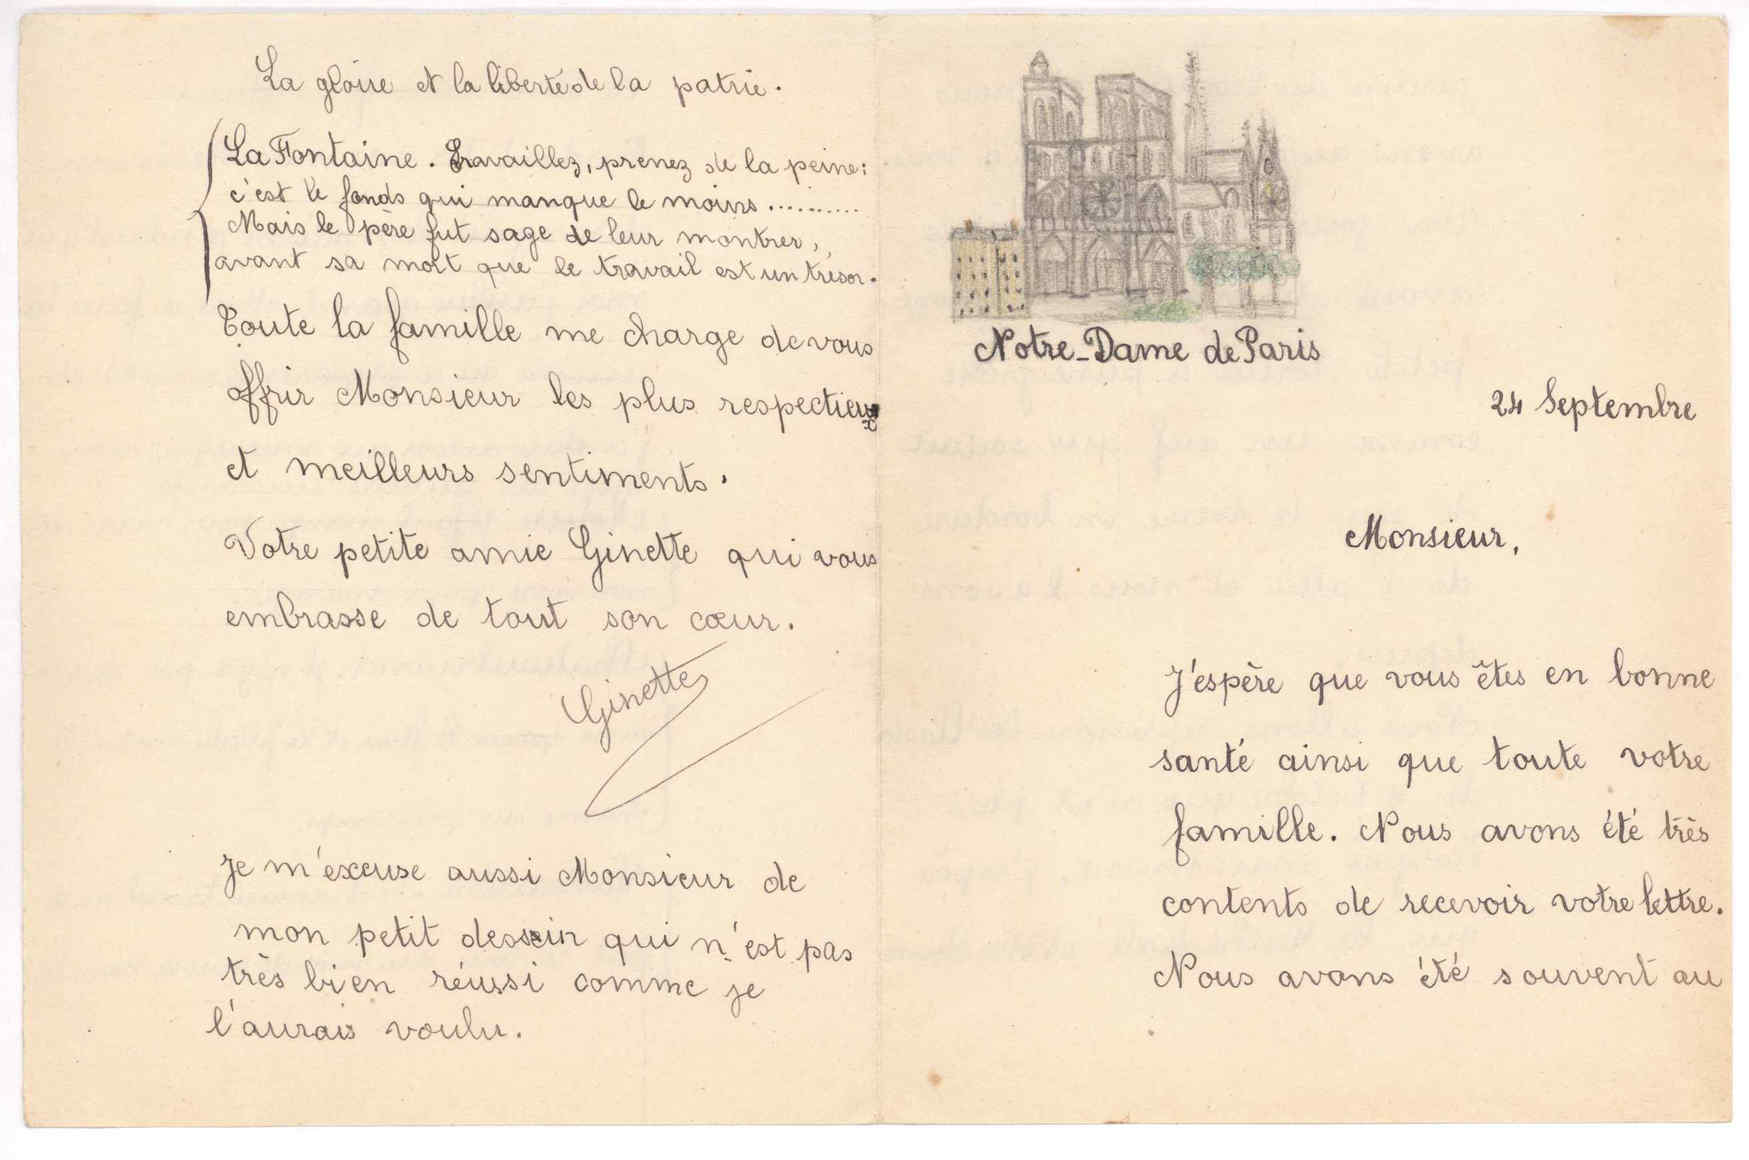 La gloire et la liberté de la patrie.
La Fontaine. Travaillez, prenez de la peine:
c'est le fonds qui manque le moins..........
Mais le père fut sage de leur montrer,
avant sa mort que le travail est un trésor.
Toute la famille me charge de vous
offrir Monsieur les plus respectieux
et meilleurs sentiments.
Votre petite amie Ginette qui vous
embrasse de tout son cœur.
Ginette
Je m'excuse aussi Monsieur de
mon petit dessein qui n'est pas
très bien réussi comme je
l'aurais voulu.
Notre-Dame de Paris
24 Septembre
Monsieur,
J'espère que vous êtes en bonne
santé ainsi que toute votre
famille. Nous avons été très
contents de recevoir votre lettre.
Nous avons été souvent au